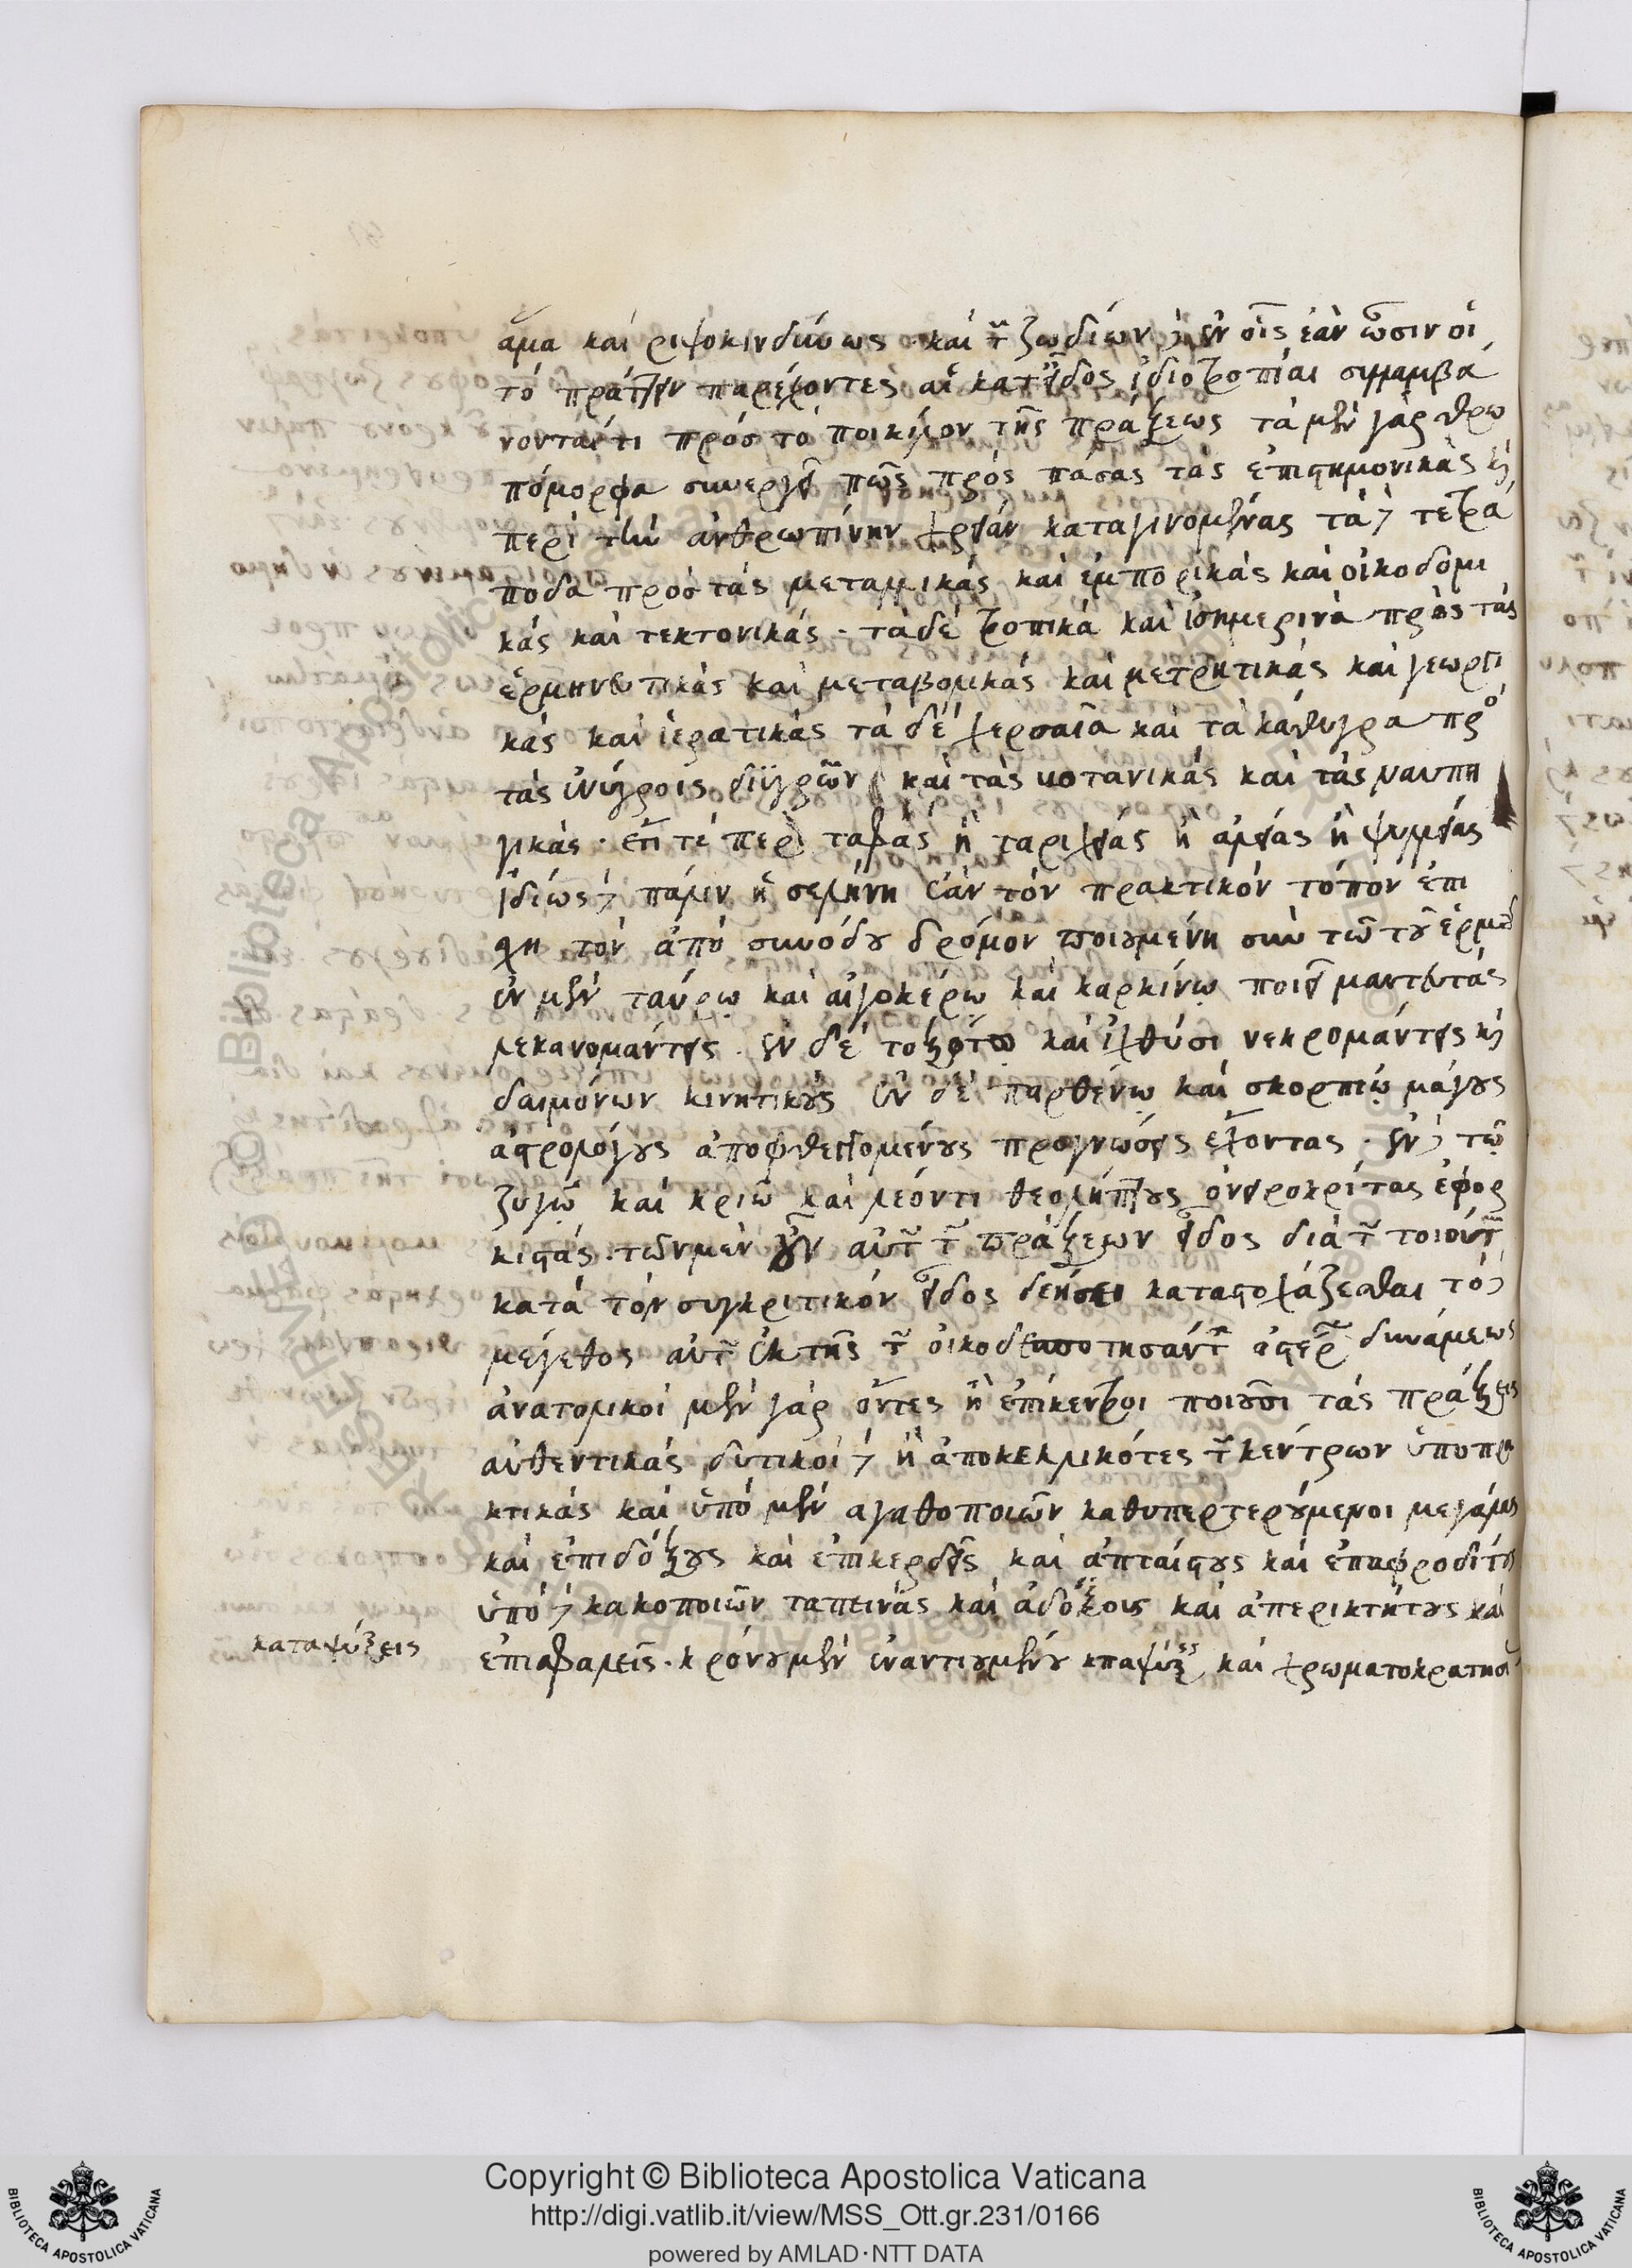 ἅμα καὶ ριψοκινδύνως · καὶ τῶν ζωδίων δὲ ἐν οἷς ἐὰν ὦσιν οἱ
τὸ πράττειν παρέχοντες αἱ κατ εἶδος ἰδιοτροπίαι συλλαμβά
νονταί τι πρὸς τὸ ποικίλον τῆς πράξεως τὰ μὲν γὰρ ἀνθρω
πόμορφα συνεργεῖ πῶς πρὸς πάσας τὰς ἐπιστημονικὰς καὶ
περὶ τὴν ἀνθρωπίνην χρείαν καταγινομένας τὰ δὲ τετρά
ποδα πρὸς τὰς μεταλλικάς καὶ ἐμπορικάς καὶ οἰκοδομι
κάς καὶ τεκτονικάς · τὰ δὲ τροπικά καὶ ἰσημερινὰ πρὸς τὰς
ἑρμηνευτικάς καὶ μεταβολικάς καὶ μετρητικάς καὶ γεωργι
κάς καὶ ἱερατικάς τὰ δὲ χερσαῖα καὶ τὰ κάθυγρα πρὸ
τὰς ἐνύγροις διϋγρῶν καὶ τὰς βοτανικάς καὶ τὰς ναυπη
γικάς · ἔτι τὲ περὶ ταφάς ἢ ταριχείας ἢ ἁλείας ἢ ψυλλείας
ἰδίως δὲ πάλιν ἡ σελήνη ἐὰν τὸν πρακτικόν τόπον ἐπι
σχῃ τὸν ἀπὸ συνόδου δρόμον ποιουμένη σὺν τῶ τοῦ ἑρμοῦ
ἐν μὲν ταύρῳ καὶ αἰγοκέρῳ καὶ καρκίνῳ ποιεῖ μαντευτάς
λεκανομάντεις · ἐν δὲ τοξότῳ καὶ ἰχθύσι νεκρομάντεις καὶ
δαιμόνων κινητικούς ἐν δὲ παρθένῳ καὶ σκορπιῷ μάγους
ἀστρολόγους ἀποφθεγγομένους προγνώσεις ἔχοντας · ἐν δὲ τῷ
ζυγῷ καὶ κριῷ καὶ λέοντι θεολήπτους ὀνειροκρίτας ἐφορ
κιστάς · τῶν μὲν οὖν αὐτῶν τῶν πράξεων εἶδος διὰ τῶν τοιούτων
κατὰ τὸν συγκριτικόν εἶδος δεήσει καταστοχάζεσθαι τὸ δὲ
μέγεθος αὐτῶν ἐκ τῆς τῶν οἰκοδεσποτησάντων ἀστέρων δυνάμεως
ἀνατολικοὶ μὲν γὰρ ὄντες ἢ ἐπίκεντροι ποιοῦσι τὰς πράξεις
αὐθεντικάς δυτικοὶ δὲ ἢ ἀποκεκλικότες τῶν κέντρων ὑποπρα
κτικάς καὶ ὑπὸ μὲν ἀγαθοποιῶν καθυπερτερούμενοι μεγάλας
καὶ ἐπιδόξους καὶ ἐπικερδεῖς καὶ ἀπταίστους καὶ ἐπαφροδίτους
ὑπὸ δὲ κακοποιῶν ταπεινὰς καὶ ἀδόξους καὶ ἀπερικτήτους καὶ
ἐπισφαλεῖς · κρόνου μὲν ἐναντιουμένου καταψύξεις καὶ χρωματοκρατησει
καταψύξεις
Copyright © Biblioteca Apostolica Vaticana
http://digi.vatlib.it/view/MSS_Ott.gr.231/0166
powered by AMLAD·NTT DATA
BIBLIOTECA APOSTOLICA VATICANA
BIBLIOTECA APOSTOLICA VATICANA